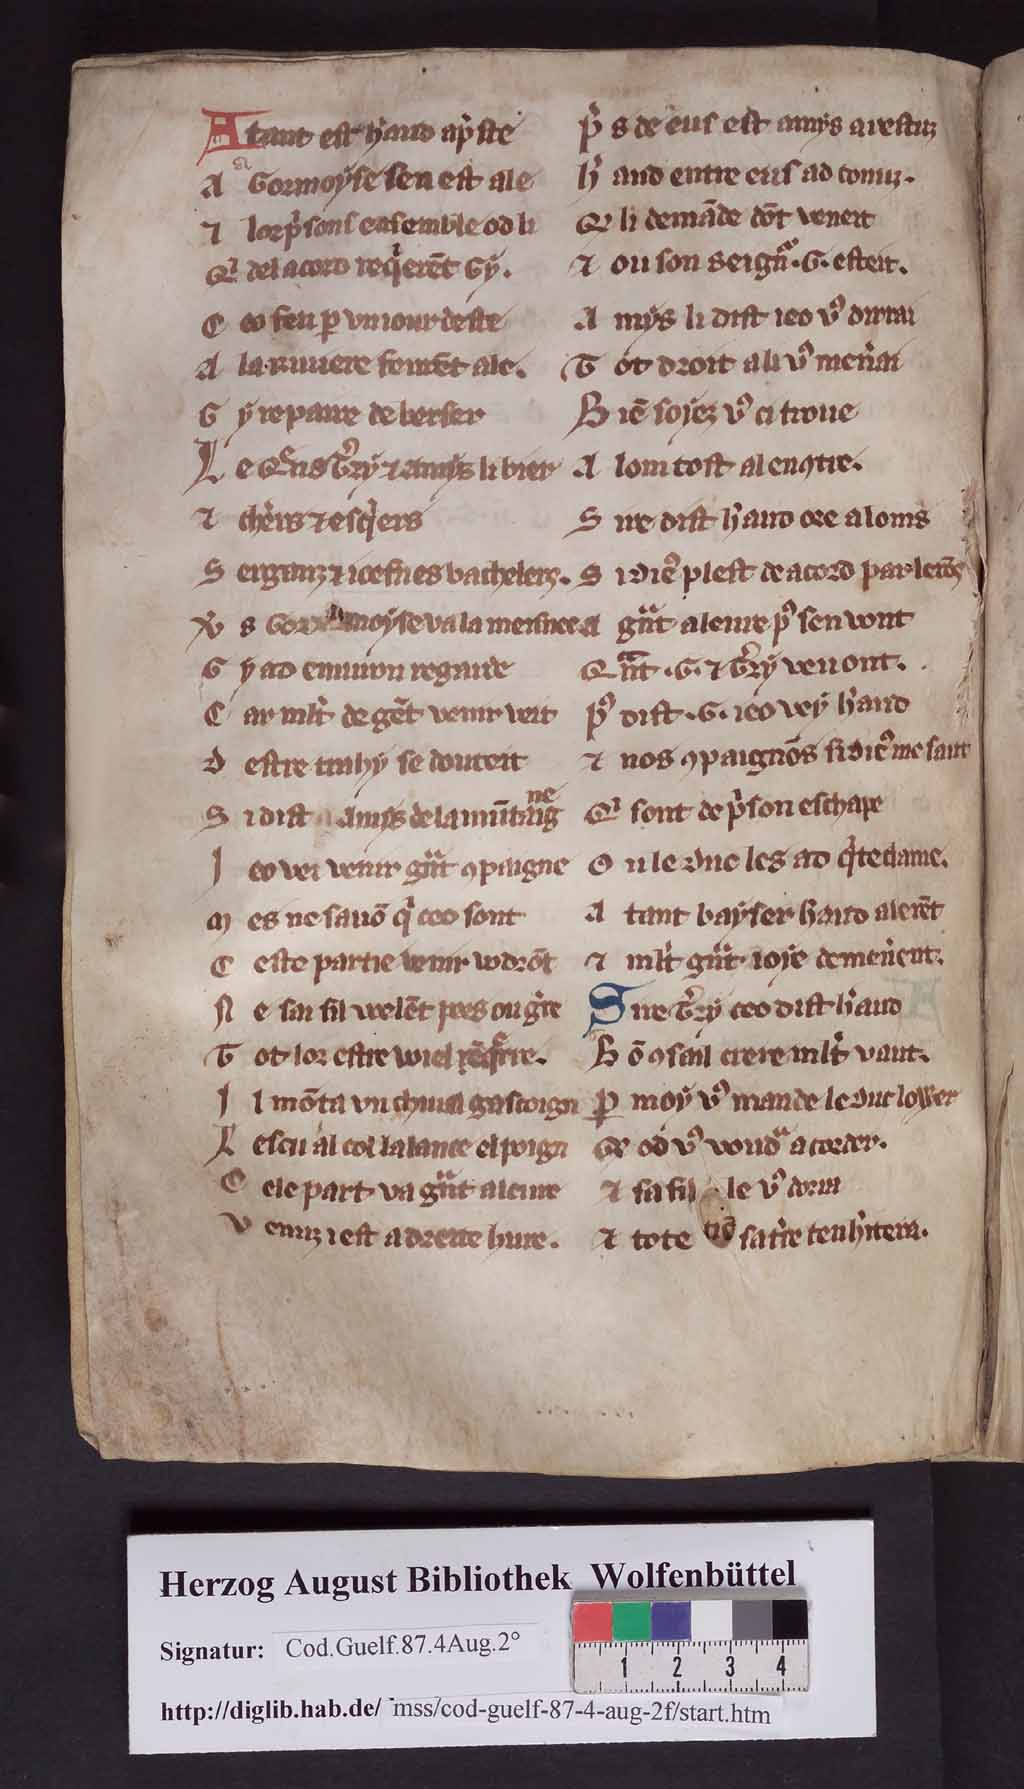 A tant est h'aud ap'ste
A Gormoyse sen est ale
⁊ lor p'sons ensemble od li
Q' del acord req'erēt Gy.
C eo feu ꝑ vn iour deste
A la riuiere furēt ale.
G y repaire de berser
L e Quēs T'ry ⁊ amys li bier
⁊ ch'rs ⁊ esq'ers
S erganz ⁊ icesnes bachelerz.
V's Gormoyse va la meisnee
G y ad enuiron regarde
C ar ml't de gēt venir veit
D estre trahy se douteit
S i dist amys de la mūtaigne
I eo vei venir g'nt ꝯpaigne
M es ne sauō q' ceo sont
C este partie venir vodrōt
N e sai sil volēt pees ou g're
T ot lor estre voil req're.
I l mōta vn chiual gascoign
L escu al col la lance el poign
C ele part va g'nt aleure
V enuz i est a dreite hure.
P's de eus est amys arestuz
H' aud entre eus ad conuz.
Q' li demāde dōt veneit
⁊ ou son seign'·G· esteit.
A mys li dist ieo v' dirrai
T ot droit a li v' merrai
B iē soyez v' ci troue
A lom tost al encōtre.
S ire dist h'aud ore aloms
S i diē plest de acord parlerōs
A g'nt aleure p' sen vont
Q'nt ·G· ⁊ T'ry veuont.
P' dist ·G· ieo vey h'aud
⁊ nos ꝯpaignōs si diē me saut
Q' sont de p'son eschape
O u le duc les ad q'te clame.
A tant bayser h'aud alerēt
⁊ ml't g'nt ioye demenent.
S ire T'ry ceo dist h'aud
B ō ꝯsail crere ml't vaut.
P moy v' mande le duc lower
Qe od v' voud' acorder.
⁊ sa fille v' dorra
⁊ tote sa t're ten h'itera.
Herzog August Bibliothek Wolfenbüttel
Signatur: Cod.Guelf.87.4Aug.2°
1 2 3 4
http://diglib.hab.de/ mss/cod-guelf-87-4-aug-2f/start.htm